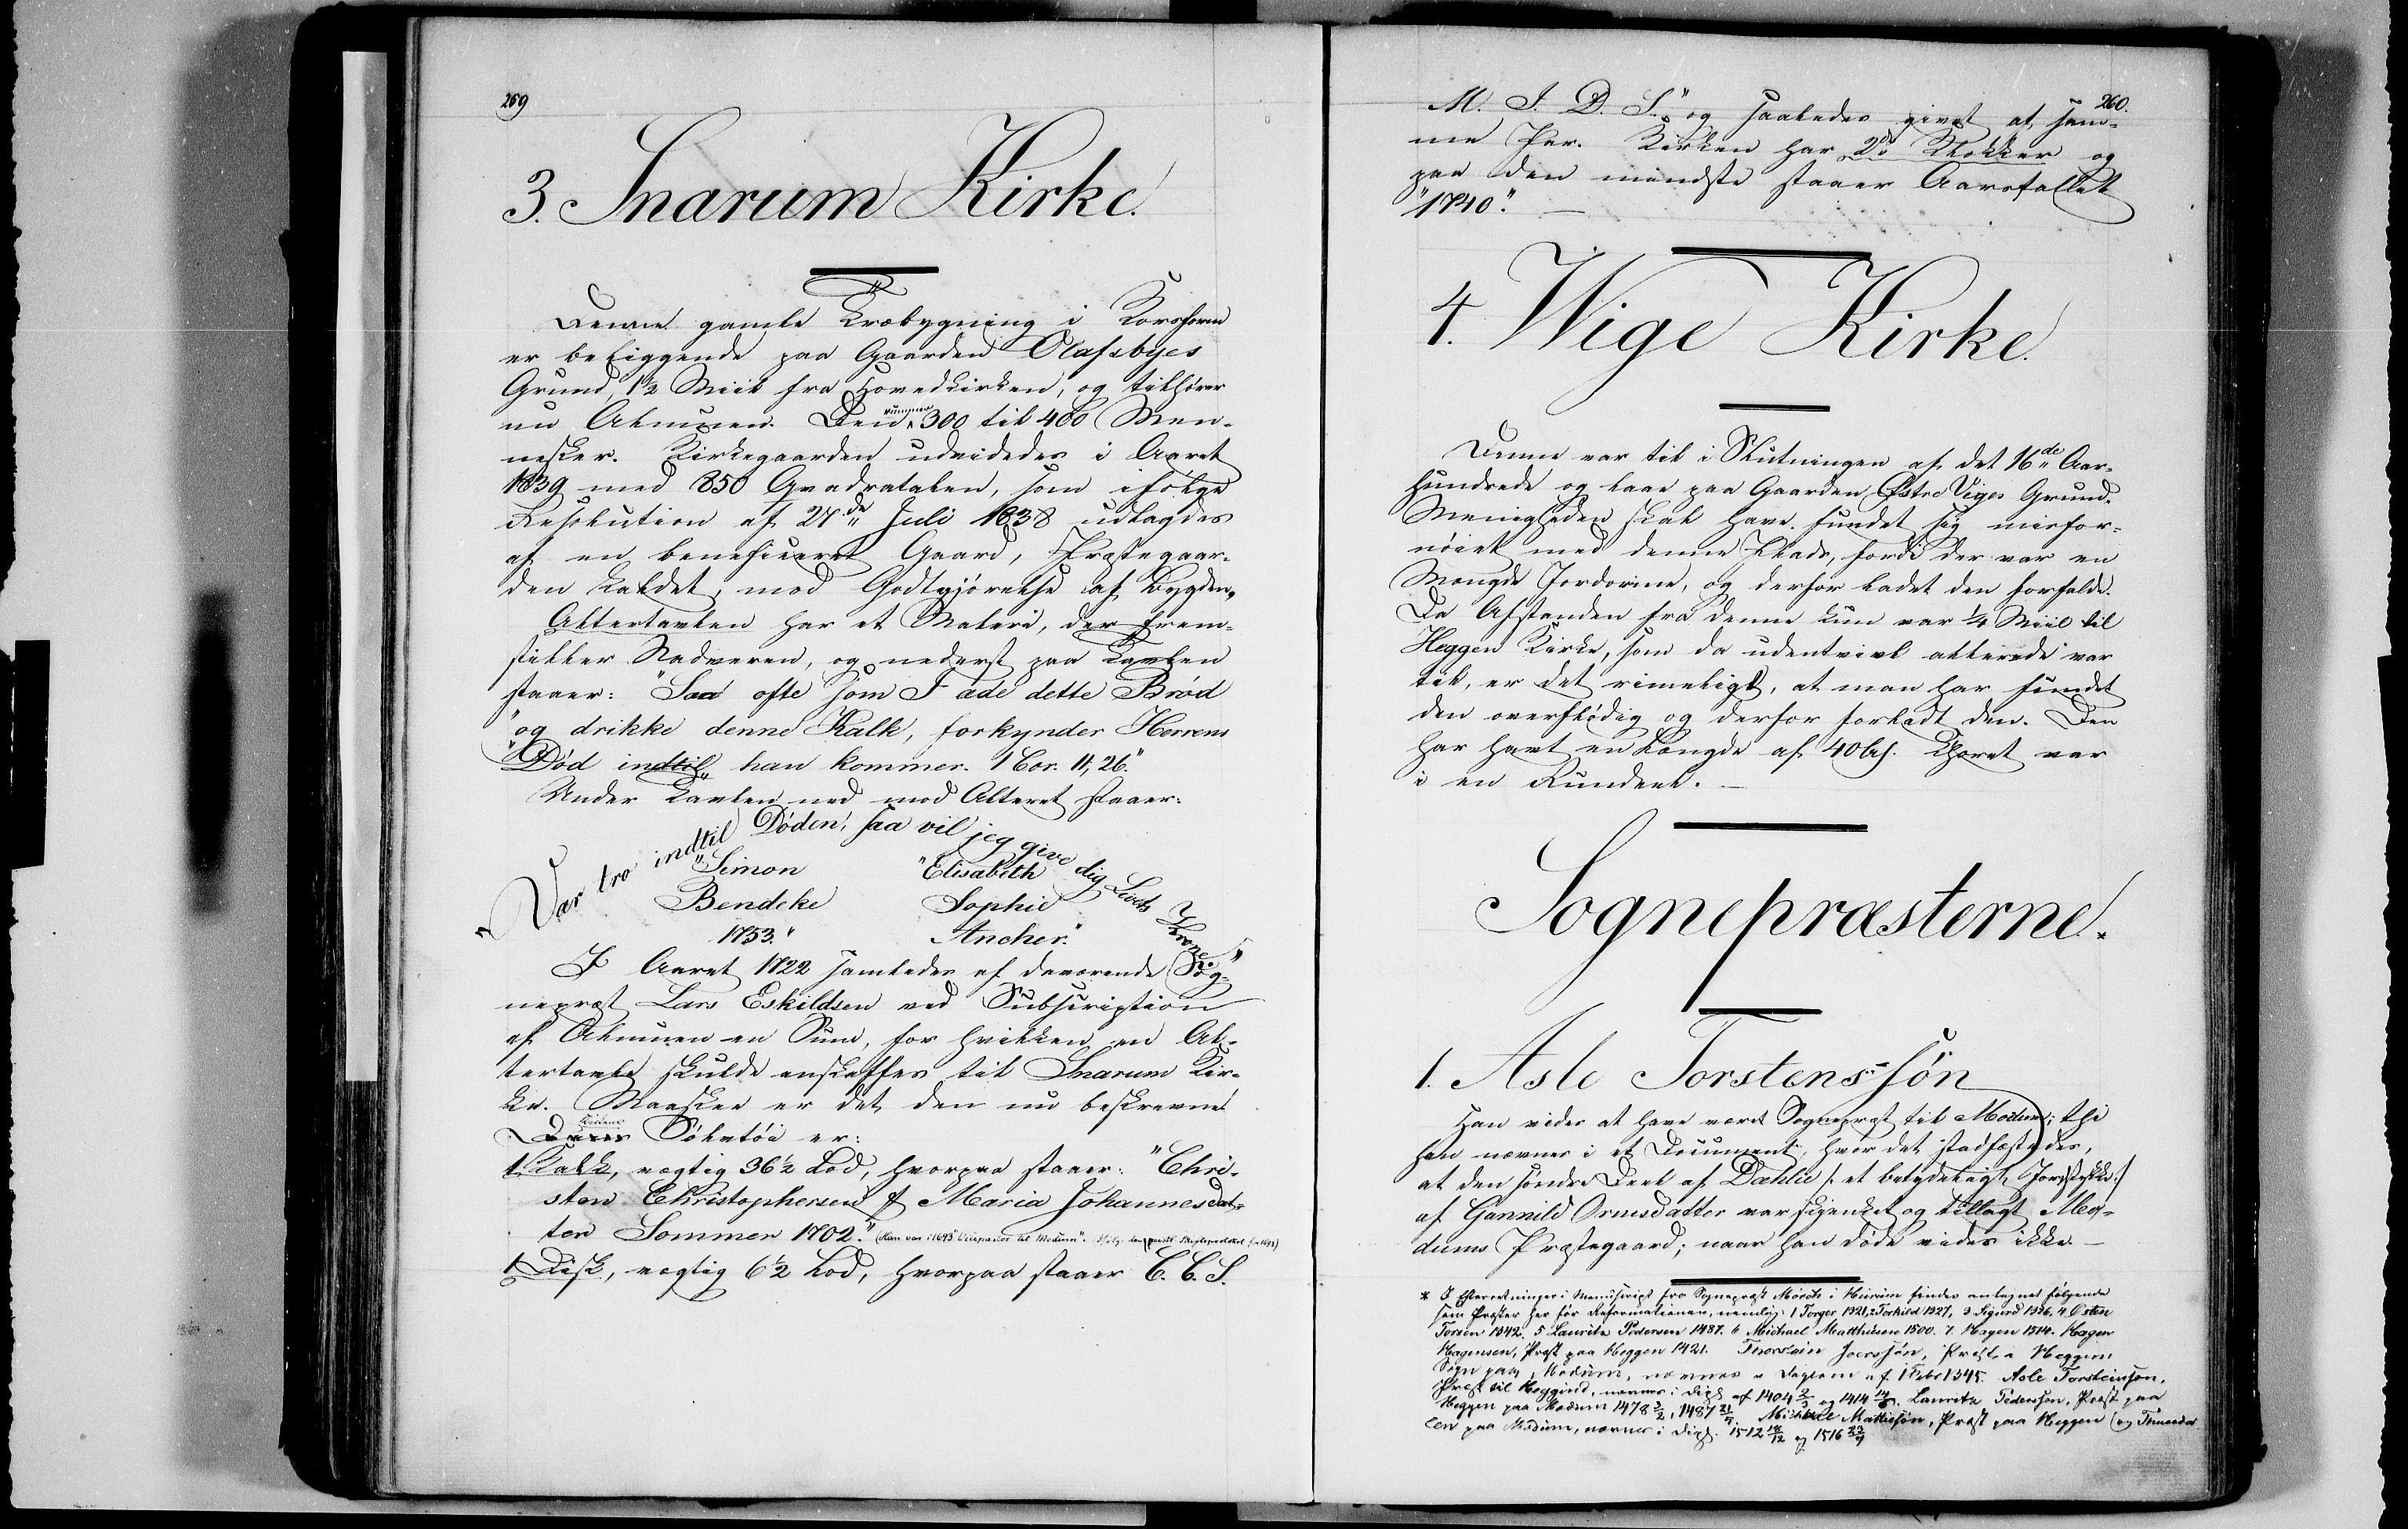 269
3. Snarum Kirke.
Denne gamle Træbygning i Korsform
er beliggende paa Gaarden Olafsbyes
Grund, 1½ Miil fra Hovedkirken, og tilhører
nu Almuen. Den rummer 300 til 400 Men-
nesker. Kirkegaarden udvidedes i Aaret
1839 med 850 Qvadratalen, som ifølge
Resolution af 27de Juli 1838 udlagdes
af en beneficeret Gaard, Præstegaar-
den kaldet, mod Godtgjørelse af Bygden.
Altertavlen har et Maleri, der frem-
stiller Nadveren, og nederst paa Tavlen
staaer: "Saa ofte som I æde dette Brød
"og drikke denne Kalk, forkynder Herrens
"Død indtil han kommer. 1 Cor. 11, 26."
Under Tavlen ned mod Alteret staaer:
"Vær tro indtil Døden, saa vil jeg give dig Livets Krone."
"Simon "Elisabeth
Bendeke Sophie
1753." Ancher."
I Aaret 1722 samledes af daværende Sog-
nepræst Lars Eskildsen ved Subscription
af Almuen en Sum, for hvilken en Al-
tertavle skulde anskaffes til Snarum Kir-
ke. Maaskee er det den nu beskrevne.
Kirkens Sølvtøi er:
1 Kalk, vægtig 36½ Lod, hvorpaa staaer: "Chri-
sten Christophersen & Maria Johannesdat-
ter Sommer 1702." (Han var i 1695 Vicepastor til Modum".
1 Disk, vægtig 6½ Lod, hvorpaa staaer C. C. S.
260.
M. J. D. S." og saaledes givet af sam-
me Par. Kirken har 2de Klokker og
paa den mindste staaer Aarstallet
"1740." —
4. Wige Kirke.
Denne var til i Slutningen af det 16de Aar-
hundrede og laae paa Gaarden Østre Viges Grund.
Menigheden skal have fundet sig misfor-
nøiet med denne Plads, fordi der var en
Mængde Jordorme, og derfor ladet den forfalde.
Da Afstanden fra denne kun var ¼ Miil til
Heggen Kirke, som da udentvivl allerede var
til, er det rimeligt, at man har fundet
den overflødig og derfor forladt den. Den
har havt en Længde af 40 Al. Choret var
i en Rundeel. —
Sognepræsterne.*
1. Asle Torstens-søn
Han vides at have været Sognepræst til Modum; thi
han nævnes i et Document, hvor det stadfæstedes,
at den søndre Deel af Dæhlie /: et betydeligt Jordstykke :/
af Gunnild Ornesdatter var skjenket og tillagt Mo-
dums Præstegaard; naar han døde vides ikke. —
* I Efterretninger i Manuscript fra Sognepræst Mørch i Hurum findes antegnet følgende
som Præster her før Reformationen, nemlig: 1 Torger 1321, 2 Torkild 1327, 3 Sigurd 1336, 4 Østen
Torsen 1342, 5 Lauritz Pedersen 1487. 6 Michael Matthiesen 1500. 7 Hagen 1514. Hagen
Hagensen, Præst paa Heggen 1421. Thorstein Joerssøn, Præst i Heggen
Sogn paa Modum, nævnes i Diplom af 1 Febr 1345. Asle Torsteinsøn,
Præst til Heggind, nævnes i Dipl. af 1404 og 1414. Lauritz Pedersøn, Præst paa
Heggen paa Modum 1478, 1487. Mikkel Mattiesøn, Præst paa Heggen (og
len paa Modum, nævnes i Dipl. 1512 og 1516